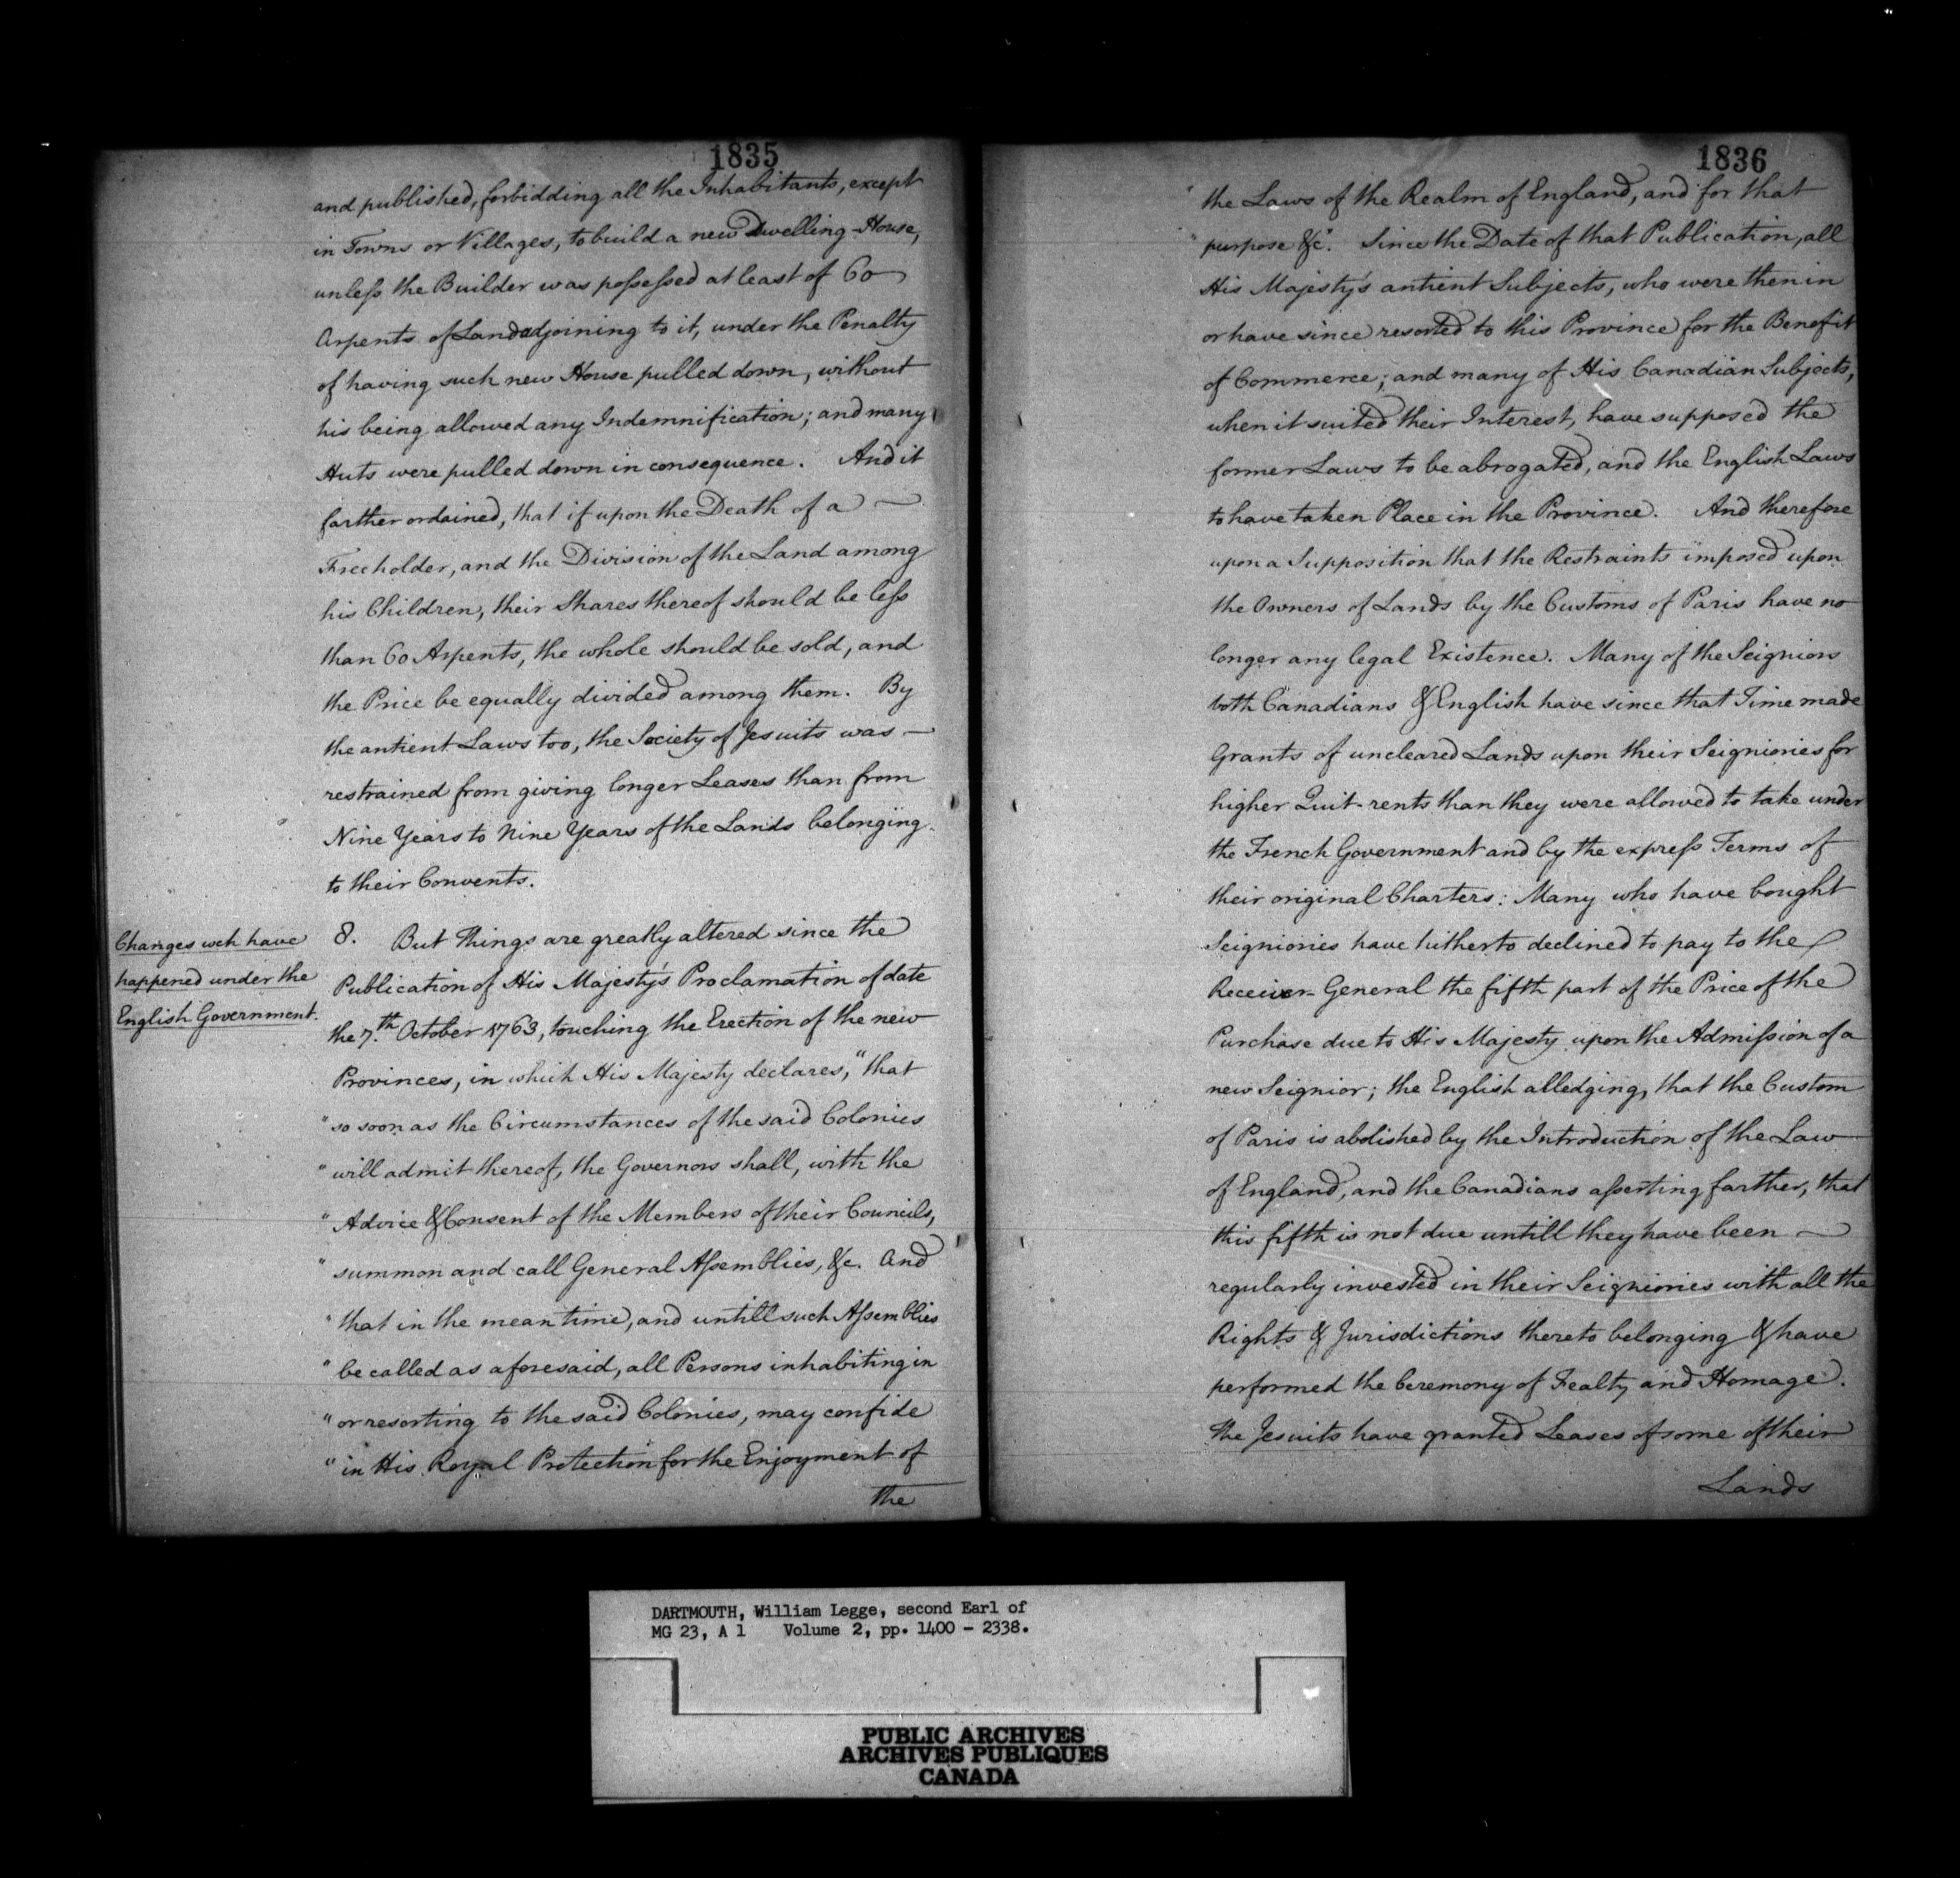 1835
and published, forbidding all the Inhabitants, except
in Towns or Villages, to build a new Dwelling-House,
unless the Builder was possessed at least of 60
Arpents of Land adjoining to it, under the Penalty
of having such new House pulled down, without
his being allowed any Indemnification; and many
Huts were pulled down in consequence. And it
farther ordained, that if upon the Death of a —
Freeholder, and the Division of the Land among
his Children, their Shares thereof should be less
than 60 Arpents, the whole should be sold, and
the Price be equally divided among them. By
the antient Laws too, the Society of Jesuits was —
restrained from giving longer Leases than from
Nine Years to Nine Years of the Lands belonging
to their Convents.
Changes wch have
happened under the
English Government.
8. But Things are greatly altered since the
Publication of His Majesty's Proclamation of date
the 7.th October 1763, touching the Erection of the new
Provinces, in which His Majesty declares, "that
"so soon as the Circumstances of the said Colonies
"will admit thereof, the Governors shall, with the
"Advice & Consent of the Members of their Councils,
"summon and call General Assemblies, &c. And
"that in the mean time, and untill such Assemblies
"be called as aforesaid, all Persons inhabiting in
"or resorting to the said Colonies, may confide
"in His Royal Protection for the Enjoyment of
the
1836
"the Laws of the Realm of England, and for that
"purpose &c". Since the Date of that Publication, all
His Majesty's antient Subjects, who were then in
or have since resorted to this Province for the Benefit
of Commerce; and many of His Canadian Subjects,
when it suited their Interest, have supposed the
former Laws to be abrogated, and the English Laws
to have taken Place in the Province. And therefore
upon a Supposition that the Restraints imposed upon
the Owners of Lands by the Customs of Paris have no
longer any legal Existence. Many of the Seigniors
both Canadians & English have since that Time made
Grants of uncleared Lands upon their Seigniories for
higher Quit-rents than they were allowed to take under
the French Government and by the express Terms of
their original Charters: Many who have bought
Seigniories have hitherto declined to pay to the
Receiver-General the fifth part of the Price of the
Purchase due to His Majesty upon the Admission of a
new Seignior; the English alledging, that the Custom
of Paris is abolished by the Introduction of the Law
of England, and the Canadians asserting farther, that
this fifth is not due untill they have been —
regularly invested in their Seigniories with all the
Rights & Jurisdictions thereto belonging & have
performed the Ceremony of Fealty and Homage.
The Jesuits have granted Leases of some of their
Lands
DARTMOUTH, William Legge, second Earl of
MG 23, A 1 Volume 2, pp. 1400 - 2338.
PUBLIC ARCHIVES
ARCHIVES PUBLIQUES
CANADA